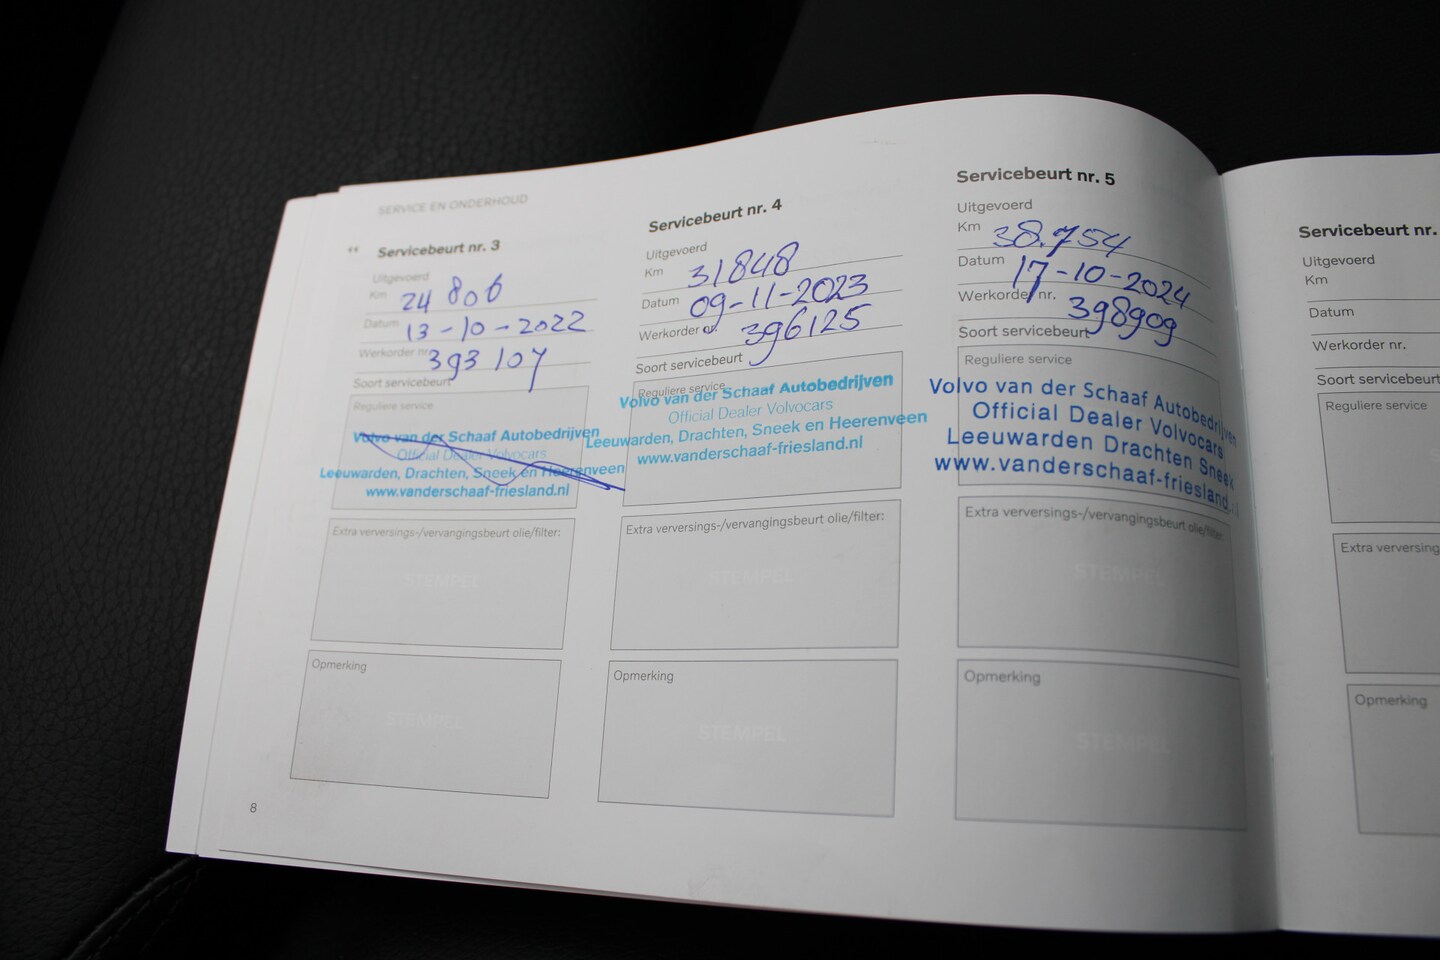 SERVICE EN ONDERHOUD
“
Servicebeurt nr. 3
Uitgevoerd
Km 24 806
Datum 13-10-2022
Werkorder nr. 393107
Soort servicebeurt
Reguliere service
Volvo van der Schaaf Autobedrijven
Official Dealer Volvocars
Leeuwarden, Drachten, Sneek en Heerenveen
www.vanderschaaf-friesland.nl
Extra verversings-/vervangingsbeurt olie/filter:
STEMPEL
Opmerking
STEMPEL
8
Servicebeurt nr. 4
Uitgevoerd
Km 31848
Datum 09-11-2023
Werkorder nr. 396125
Soort servicebeurt
Reguliere service
Volvo van der Schaaf Autobedrijven
Official Dealer Volvocars
Leeuwarden, Drachten, Sneek en Heerenveen
www.vanderschaaf-friesland.nl
Extra verversings-/vervangingsbeurt olie/filter:
STEMPEL
Opmerking
STEMPEL
Servicebeurt nr. 5
Uitgevoerd
Km 38.754
Datum 17-10-2024
Werkorder nr. 398909
Soort servicebeurt
Reguliere service
Volvo van der Schaaf Autobedrijven
Official Dealer Volvocars
Leeuwarden Drachten Sneek
www.vanderschaaf-friesland.
Extra verversings-/vervangingsbeurt olie/filter:
STEMPEL
Opmerking
STEMPEL
Servicebeurt nr.
Uitgevoerd
Km
Datum
Werkorder nr.
Soort servicebeurt
Reguliere service
Extra verversing
Opmerking